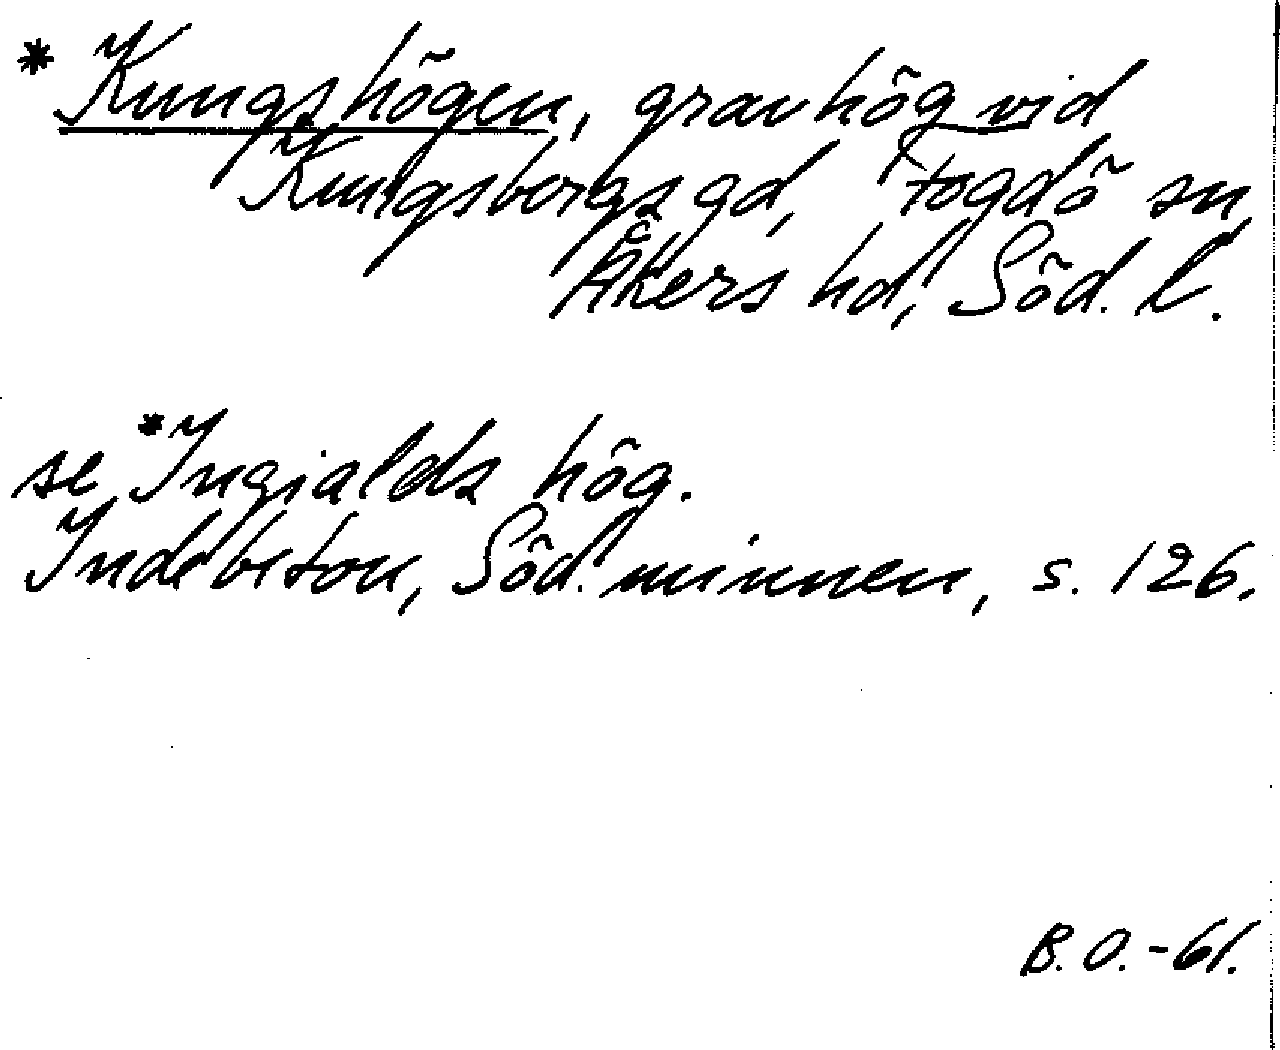 * Kungshögen, gravhög vid
Kungsbergs gd, Fogdö sn,
Åkers hd, Söd. l.
se *Ingialds hög.
Indebetou, Söd. minnen, s. 126.
B.O.-61.